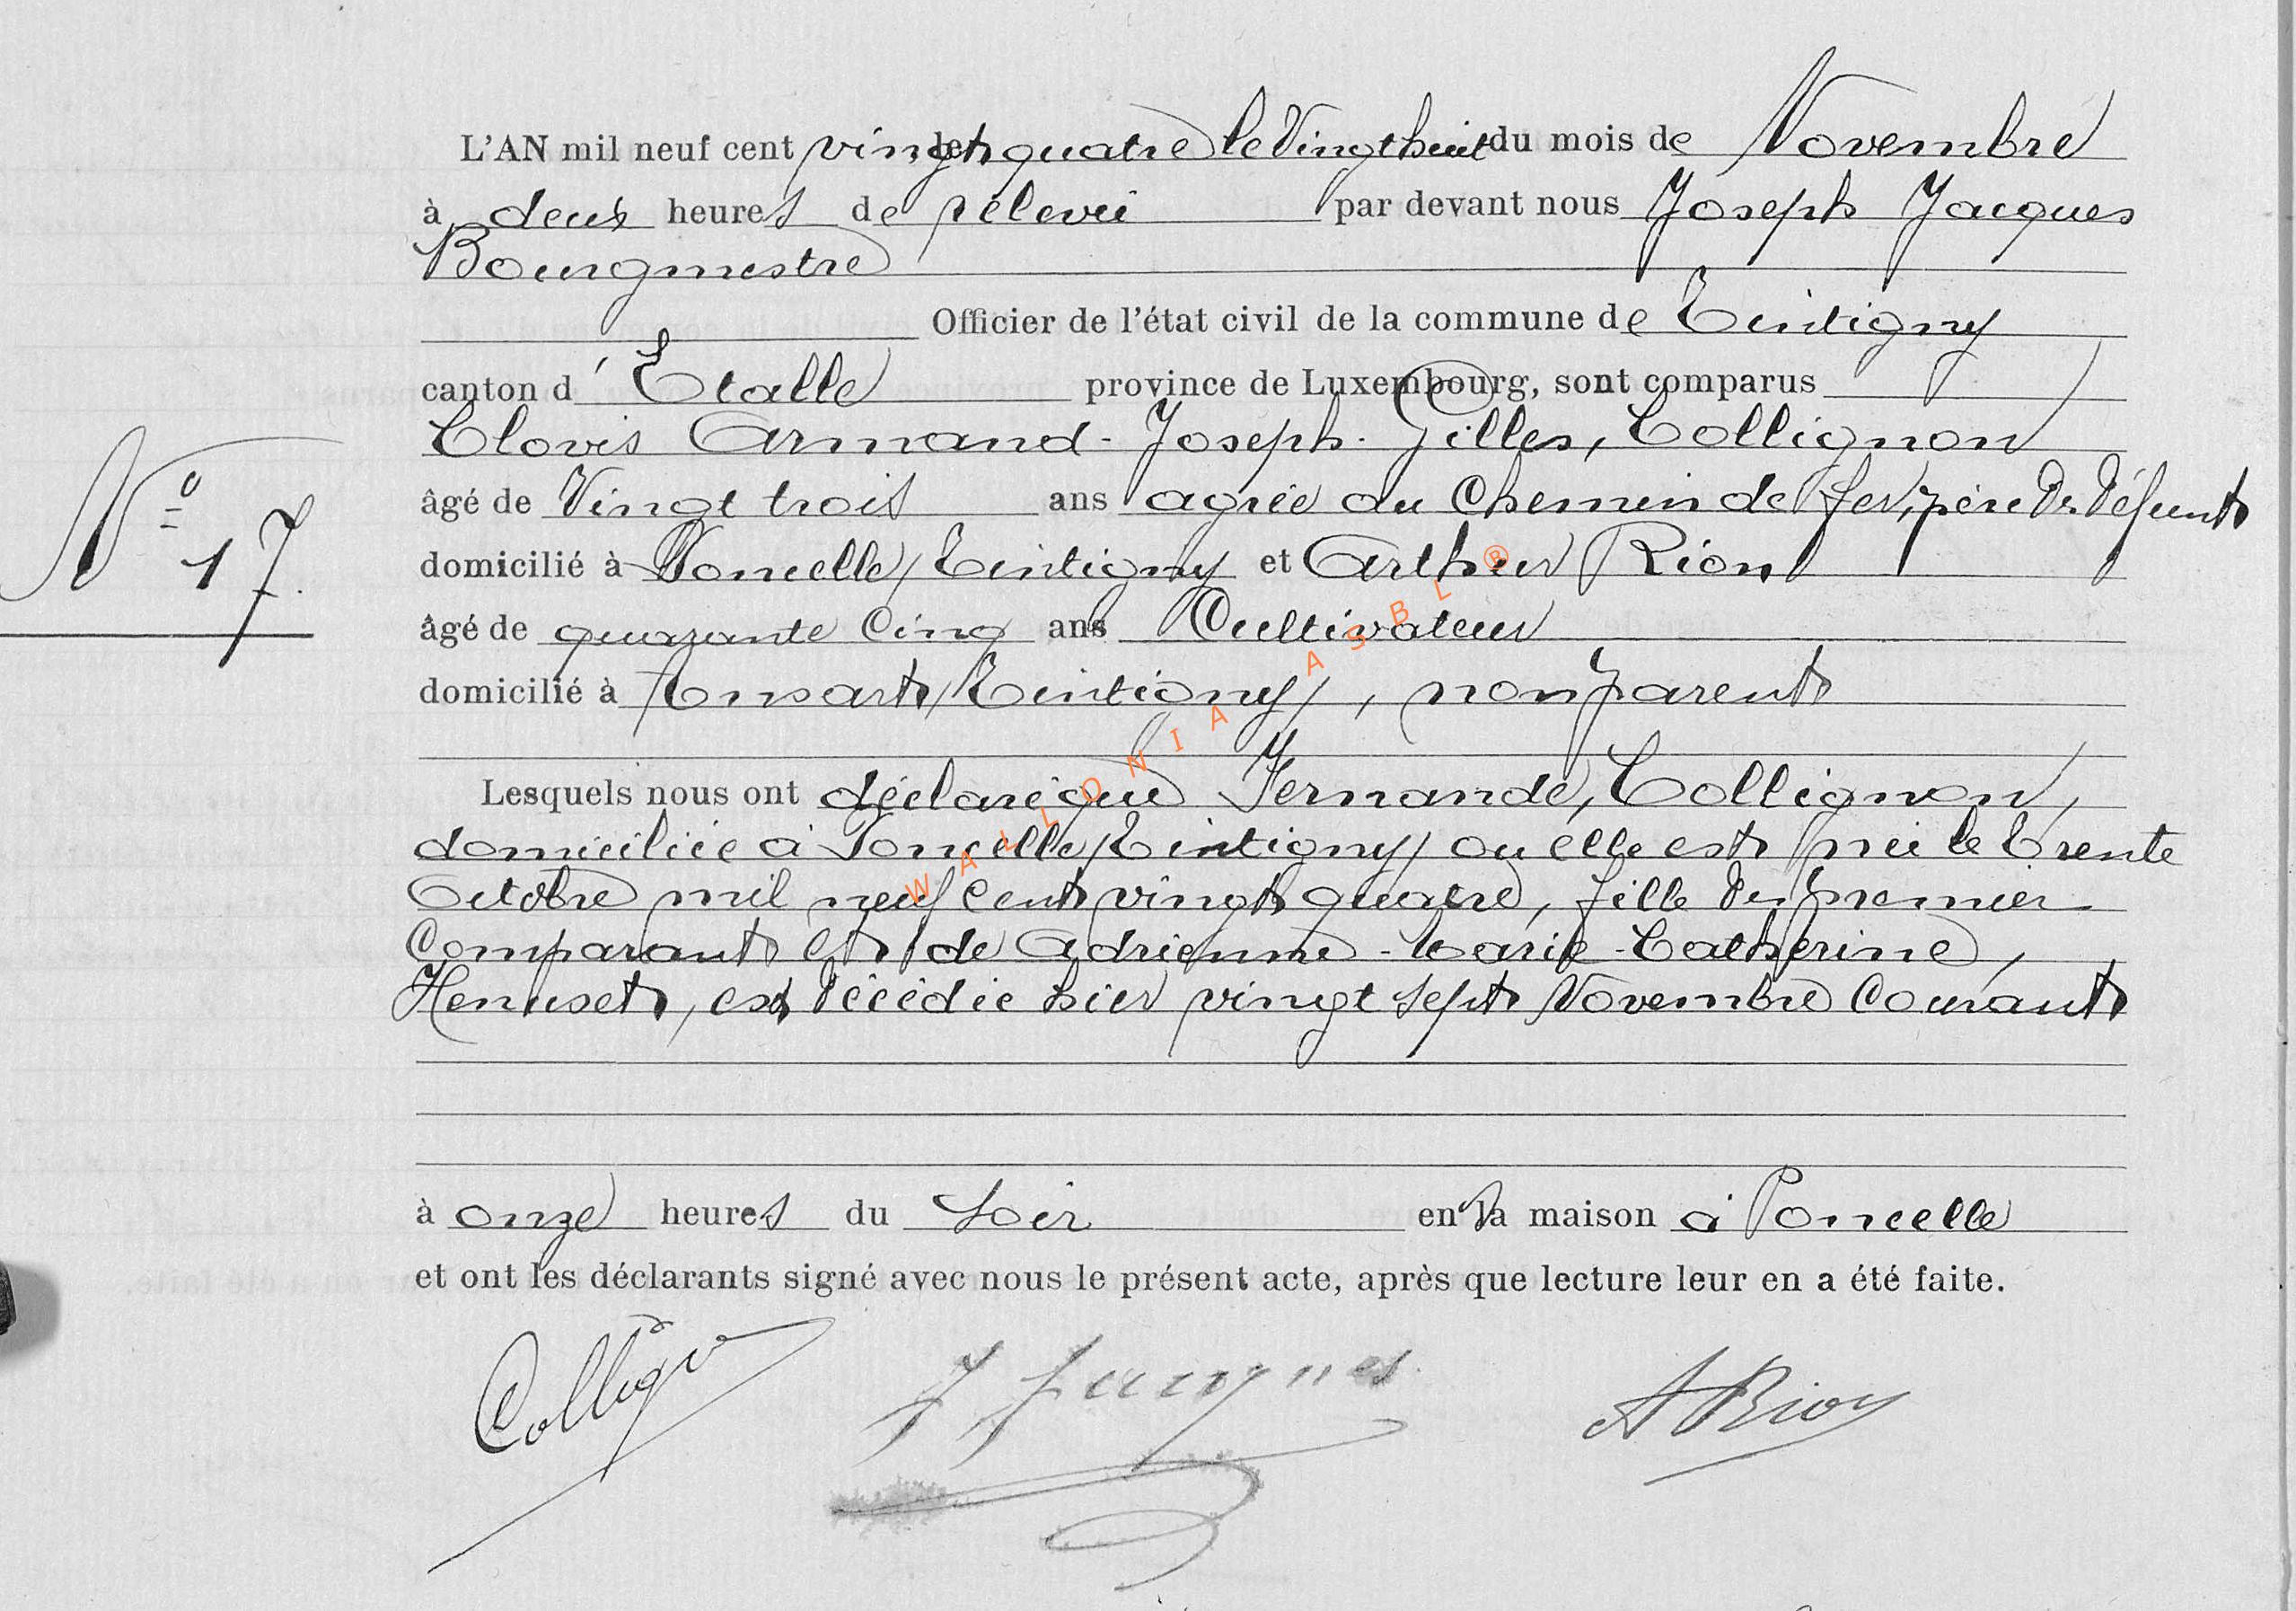 L'AN mil neuf cent vingt quatre le Vingt huit du mois de Novembre
à deux heures de rélevée par devant nous Joseph Jacques
Bourgmestre
Officier de l'état civil de la commune de Tintigny
canton d'Etalle province de Luxembourg, sont comparus
Clovis Armand-Joseph-Gilles, Collignon
N° 17.
âgé de Vingt trois ans agrée au Chemin de fer, père De défunt
domicilié à Poncelle/Tintigny et Arthur Rion
âgé de quarante Cinq ans Cultivateur
domicilié à Ansart/Tintigny/, non parent
Lesquels nous ont déclaré que Fernande, Collignon,
domiciliée à Poncelle/Tintigny/ ou elle est née le trente
Octobre mil neuf Cent vingt quatre, fille du premier
Comparant et de Adrienne-Marie-Catherine,
Henuset, est décédée hier vingt sept Novembre Courant
à onze heures du Soir en la maison à Poncelle
et ont les déclarants signé avec nous le présent acte, après que lecture leur en a été faite.
J Jacques A Rion
WALLONIA ASBL ®